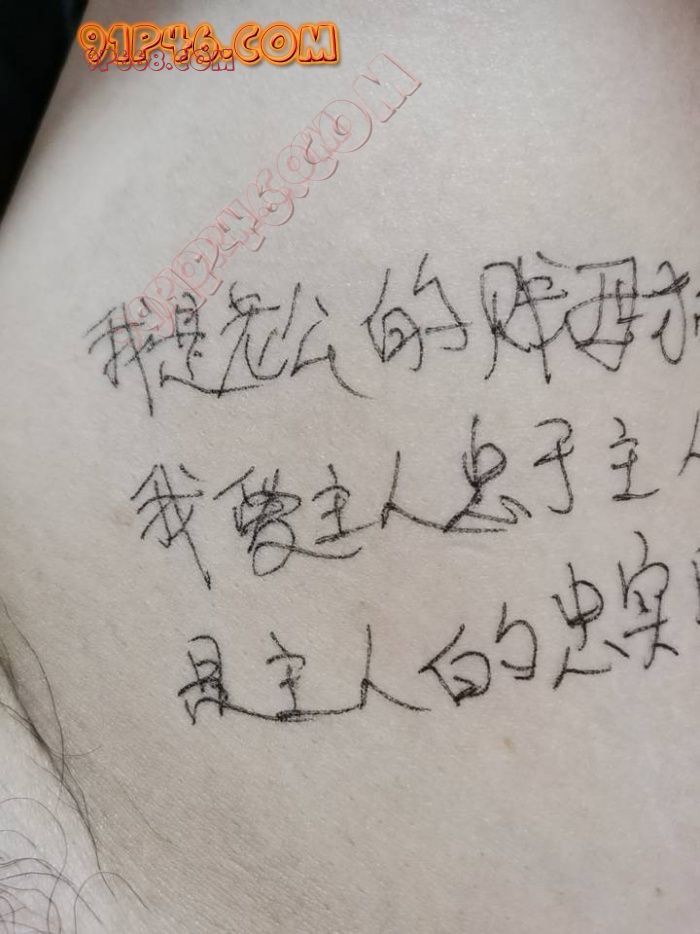 91P46.COM
91P668.COM
9191P4659.COM
我是老公的贱母狗
我要主人忠于主人
是主人的忠实